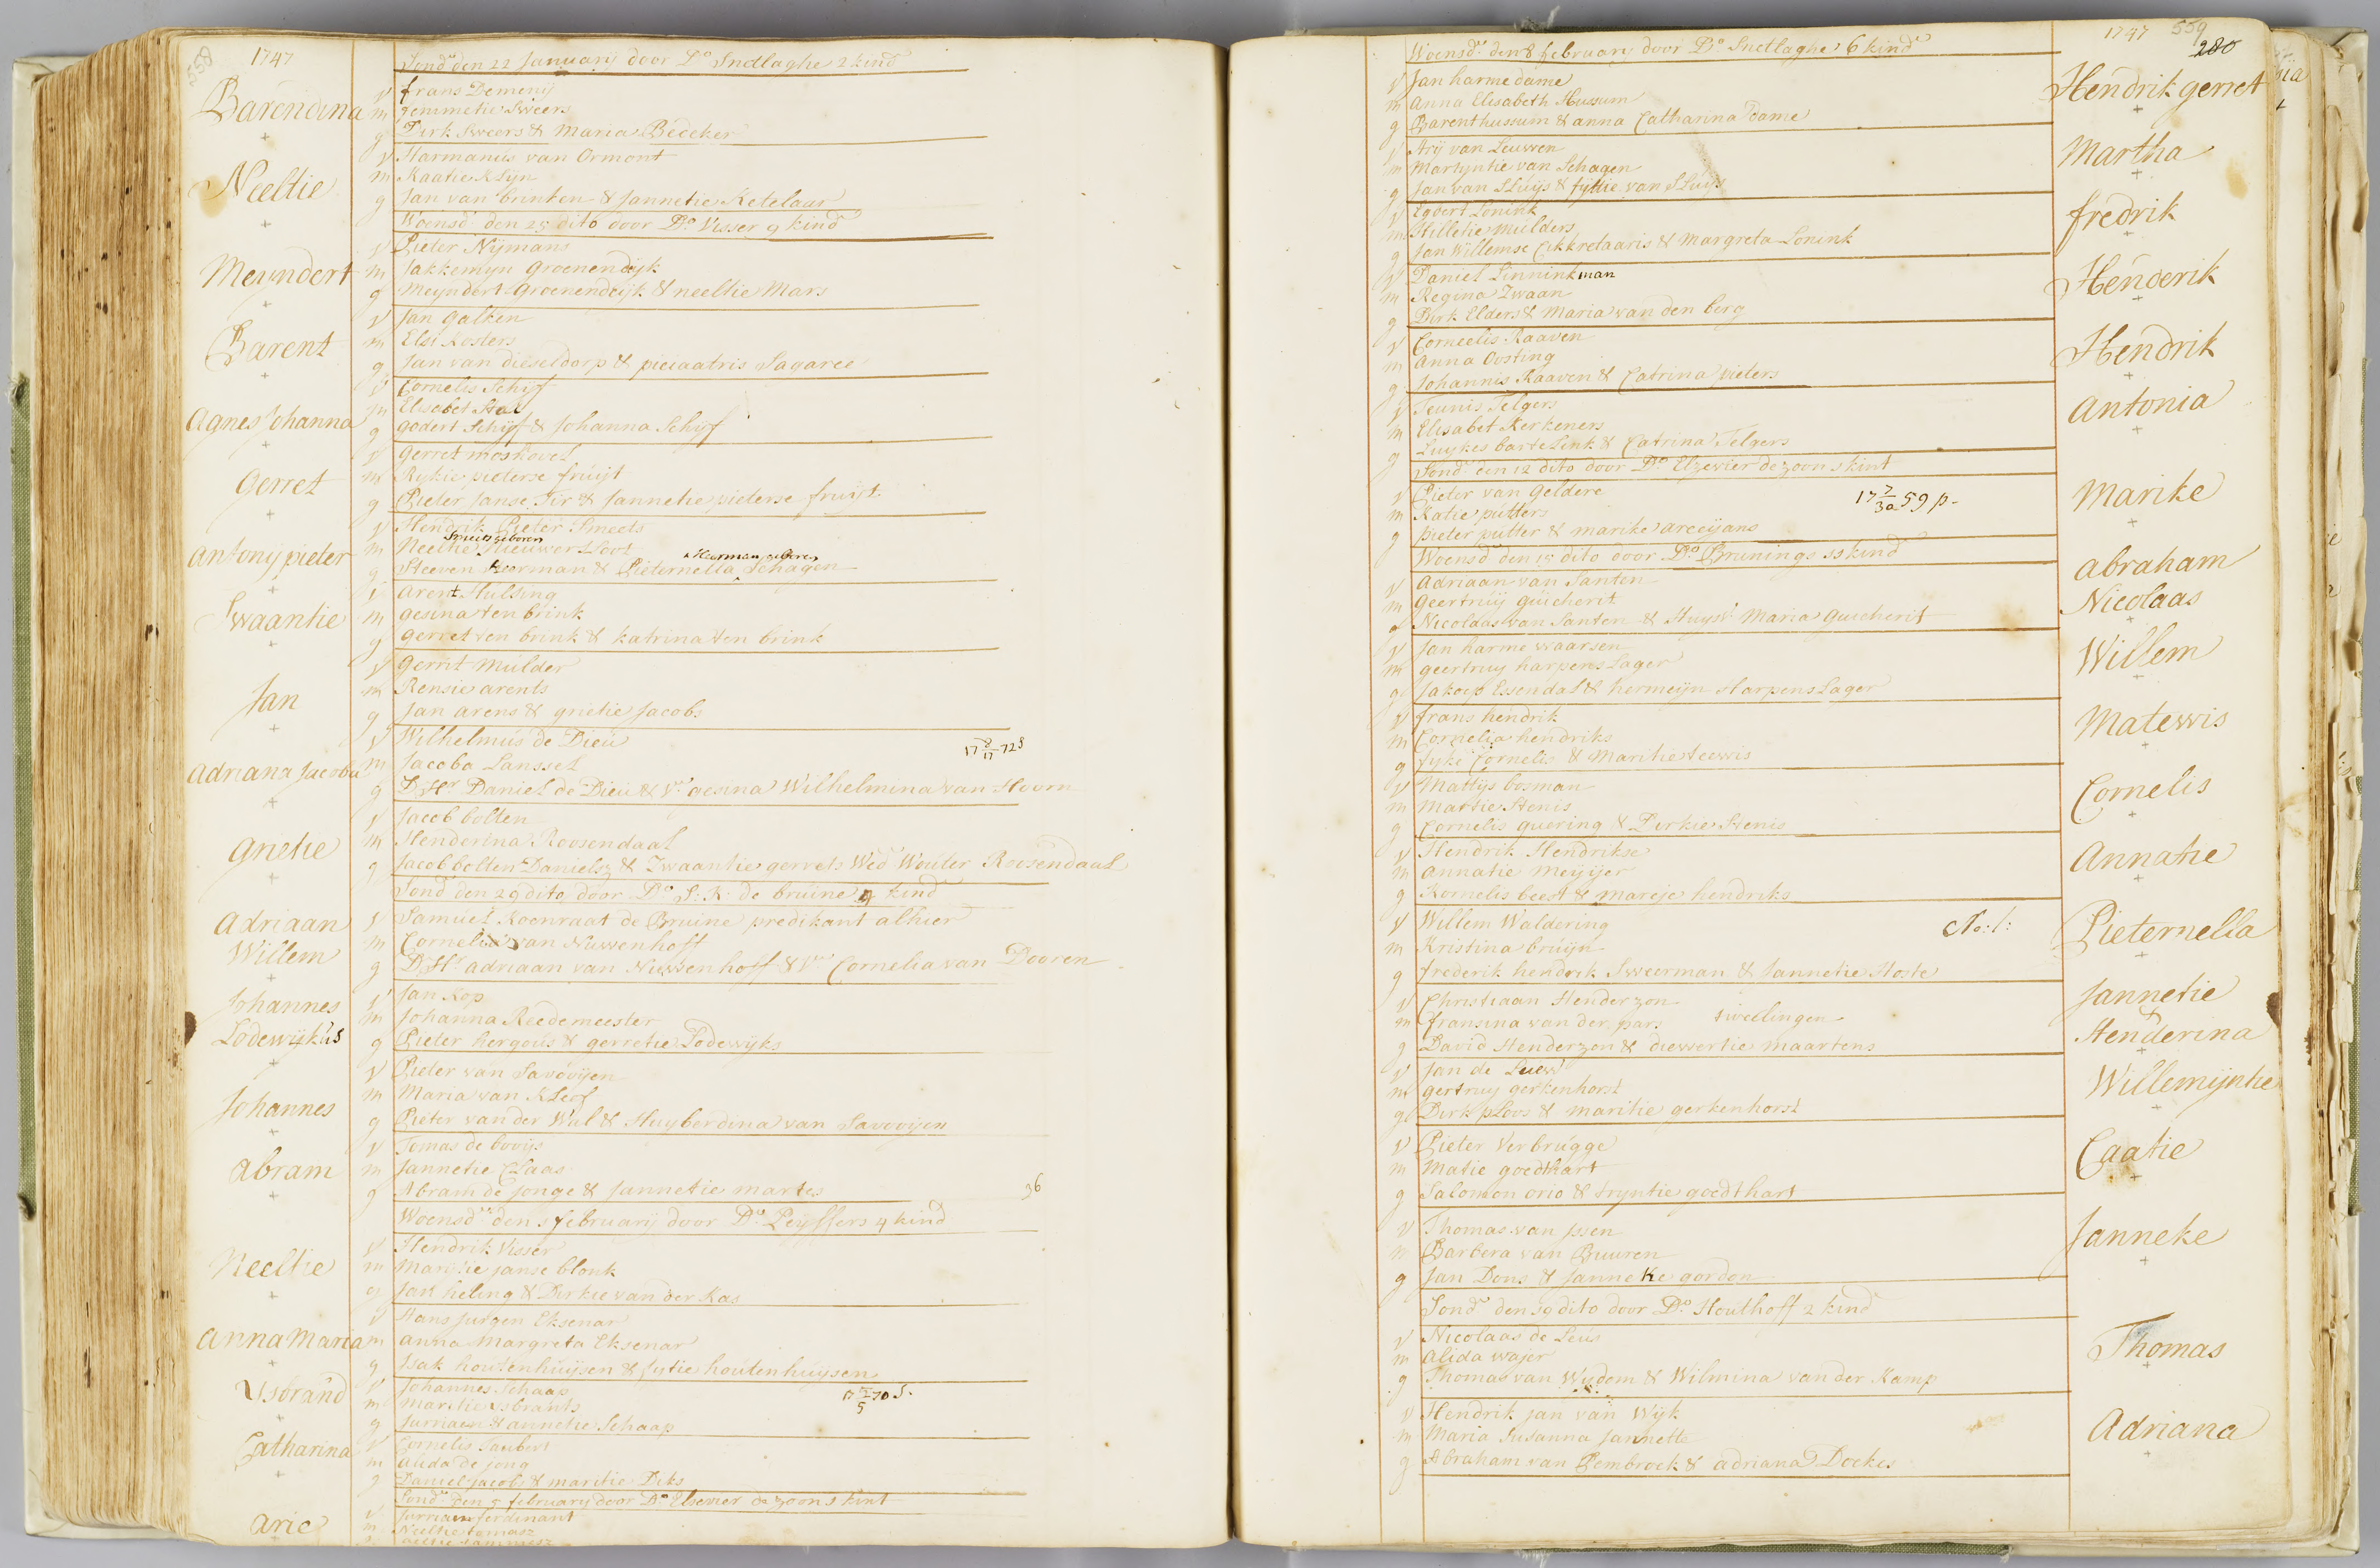 558
1747
Sond.r den 22 Januarij door D.o Snetlaghe 2 kind
Barendina
v frans Demenij
m gemmetie Sweers
g Dirk Sweers & Maria Bedeker
+
Neeltie
v Harmanus van Ormont
m Kaatie Klijn
g Jan van brinten & Jannetie Ketelaar
+
Woensd den 25 dito door D.o Visser 9 kind
Meyndert
v Pieter Nijmans
m Jakkemyn Groenendijk
g Meyndert Groenendijk & neeltie Mars
+
Barent
v Jan Galken
m Elsi Kosters
g Jan van dieseldorp & Sagaree
+
Agnes Johanna
v Cornelis Schijf
m Elisabet Hal
g godert Schijf & Johanna Schijf
+
Gerret
v Gerret moskovel
m Rykie pieterse fruijt
g Pieter Janse Tir & Jannetie pieterse fruijt
+
Antonij pieter
v Hendrik Pieter Smeets
Smeets geboren
m Neeltie Nieuwersloot
Heerman geboren
g Steeven Heerman & Pieternella Schagen
+
Swaantie
v Arent Hulsing
m gesina ten brink
g gerret ten brink & katrina ten brink
+
Jan
v Gerrit Mulder
m Rensie arents
g Jan arens & grietie Jacobs
+
Adriana Jacoba
v Wilhelmus de Dieu
m Jacoba Lanssel
17 8/17 72 S
g D.Hr Daniel de Dieu & Vr gesina Wilhelmina van Hoorn
+
Grietie
v Jacob bolten
m Henderina Roosendaal
g Jacob bolten Danielsz & Zwaantie gerrets Wed Wouter Roosendaal
+
Sond den 29 dito door D.o S: K: de bruine 4 kind
Adriaan
Willem
v Samuel Koenraat de Bruine predikant alhier
m Cornelia van Nuwenhoff
g D.Hr adriaan van Nuwenhoff & Vr Cornelia van Dooren
+
Johannes
Lodewijkus
v Jan Kop
m Johanna Reedemeester
g Pieter hergous & gerretie Lodewijks
+
Johannes
v Pieter van Savooijen
m Maria van Kleef
g Pieter van der Wal & Huyberdina van Savooijen
+
Abram
v Tomas de booijs
m Jannetie Claas
g Abram de Jonge & Jannetie martes
36
+
Woensd den 1 februarij door D.o Peijffers 4 kind
Neeltie
v Hendrik Visser
m Maritie janse blonk
g Jan heling & Dirkie van der Kas
+
Anna Maria
v Hans Jurgen Eksenar
m anna Margreta Eksenar
g Isak houtenhuijsen & Sytie houtenhuijsen
+
Ysbrand
v Johannes Schaap
m Maritie ysbrants
17 12/5 70 S.
g Jurriaen & annetie Schaap
+
Catharina
v Cornelis Taubert
m alida de jong
g Daniel jacobs & maritie Diks
+
Sond. den 5 februarij door D.o Elsevier de zoon 1 kint
Arie
v Jurriaen ferdinant
m Neeltie tomasz
1747 559
280
Woensd. den 8 februarij door D.o Snetlaghe 6 kind
v Jan harme dame
Hendrik gerret
m Anna Elisabeth Hussum
g Barent hussum & anna Catharina dame
+
v Arij van Leuwen
Martha
m Martyntie van Schagen
g Jan van Sluijs & fijttie van Sluijs
+
v Egbert Lonink
fredrik
m Hilletie Mulders
g Jan Willemse Cikkretaaris & Margreta Lonink
+
v Daniel Linninkman
Henderik
m Regina Zwaan
g Dirk Elders & Maria van den berg
+
v Corneelis Raaven
Hendrik
m Anna Oosting
g Johannis Raaven & Catrina pieters
+
v Teunis Telgers
Antonia
m Elisabet Kerkeners
g Luykes bartelink & Catrina Telgers
+
Sond. den 12 dito door D.o Elzevier de zoon 1 kint
v Pieter van Geldere
Marike
17 7/30 59 p.
m Katie putters
g pieter putter & marike areeijans
+
Woensd den 15 dito door D.o Brunings 11 kind
v Adriaan van Santen
abraham
Nicolaas
m Geertruij guicherit
g Nicoldas van Santen & Huysv. Maria Guicherit
+
v Jan harme waarsen
Willem
m geertruy harpenslager
g Jakoep Essendal & hermeijn Harpenslager
+
v frans hendrik
Matewis
m Cornelia hendriks
g fyki Cornelis & Maritie teewis
+
v Mattijs bosman
Cornelis
m Martie Stenis
g Cornelis quering & Dirkie Stenis
+
v Hendrik Hendrikse
Annatie
m annatie Meijijer
g Kornelis beest & mareje hendriks
+
v Willem Waldering
No: 1:
Pieternella
m Kristina bruijn
g frederik hendrik Sweerman & Jannetie Hoste
+
v Christiaan Henderzon
Jannetie
Henderina
m fransina van der pars tweelingen
g David Henderzon & diewertie maartens
+
v Jan de Leew
Willemijntie
m gertruy gerkenhorst
g Dirk ploos & maritie gerkenhorst
+
v Pieter Verbrugge
Caatie
m Matie goedthart
g Salomon orio & tryntie goedthart
+
v Thomas van Jssen
Janneke
m Barbera van Buuren
g Jan Dons & Janneke gordon
+
Sond. den 19 dito door D.o Houthoff 2 kind
v Nicolaas de Leus
Thomas
m alida wajer
g Thomas van Wijdom & Wilmina van der Kamp
+
v Hendrik jan van Wijk
Adriana
m Maria Susanna Jannette
g Abraham van Pembroek & adriana Doekes
+